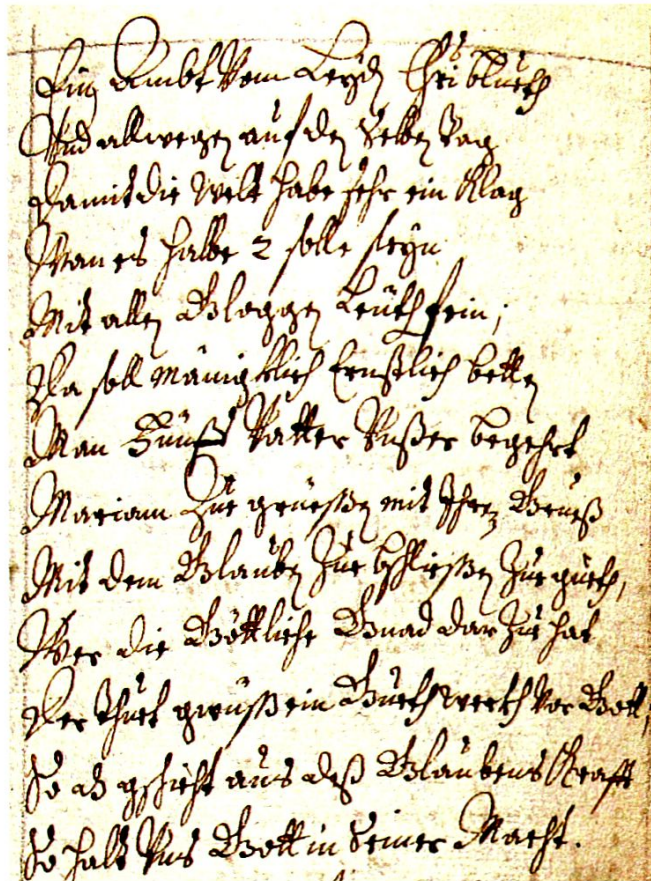 Ein Ambt Vom Leyd Chri bluoth
Und allwegen auf den Selben Tag
Damit die Welt habe sehr ein Klag
Wan es halbe 2 solle seyn
Mit allen Gloggen Leüth fein;
Da soll mänigklich Ernstlich betten
Man Vatter Unßer begehrt
Mariam Zue grüeßen mit Ihrem Grueß
Mit dem Glauben Zue bschließen Zue gueth,
Wer die Göttliche Gnad dar Zue hat
Der Thuet gwüß ein Gueth werch Vor Gott,
So es gschicht aus deß Glaubens Krafft
So halt Uns Gott in Seiner Macht.